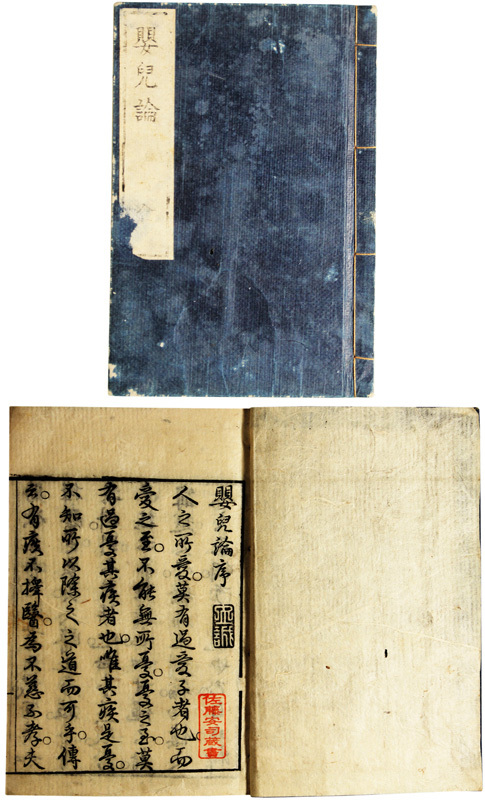 嬰兒論
嬰兒論序
人之所愛莫有過愛子者也而
愛之至不能無所憂憂之至莫
有過憂其疾者也惟其疾是憂
不知所以除之之道而可乎傳
云有疾不擇醫為不慈不孝夫
佐藤安司蔵書